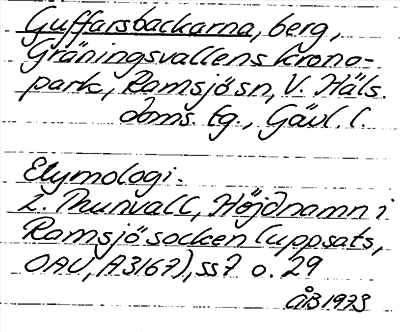 Guffarsbackarna, berg,
Gräningsvallens krono-
park, Ramsjö sn, V. Häls.
doms. tg., Gävl. l.
Etymologi.
L. Thunvall, Höjdnamn i
Ramsjö socken (uppsats,
OAU, A3167), ss 7 o. 29
ÅB 1973